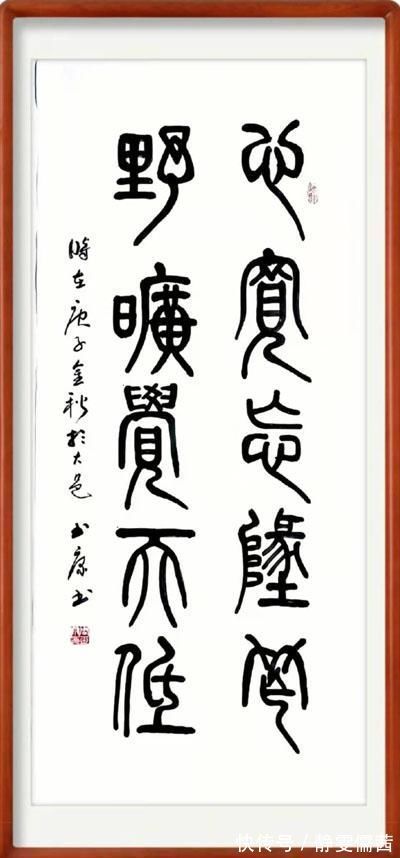 心寬忘墬窄
野曠覺天低
時在庚子金秋於大邑 玉康书
快传号/静雯儒茜